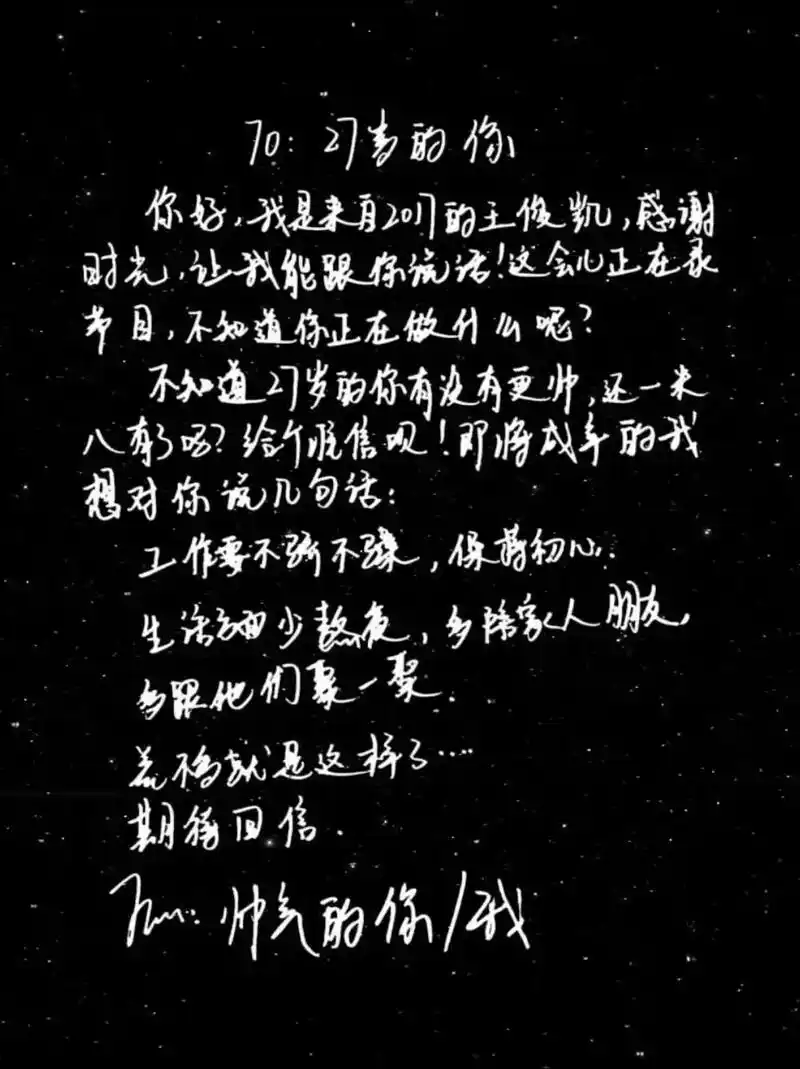 TO: 27岁的你
你好,我是来自2017的王俊凯,感谢
时光,让我能跟你说话!这会儿正在录
节目,不知道你正在做什么呢?
不知道27岁的你有没有更帅,还一米
八有了吗?给个准信呗!即将成年的我
想对你说几句话:
工作要不骄不躁,保持初心.
生活方面少熬夜,多陪家人朋友,
多跟他们聚一聚.
差不多就是这样了……
期待回信.
From: 帅气的你/我